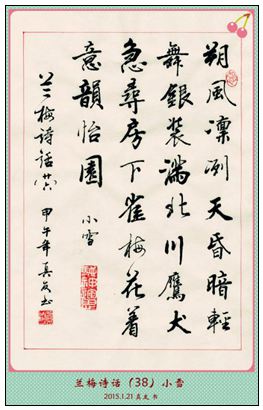 朔風凜冽天昏暗輕
舞銀裝滿北川鷹犬
急尋房下雀梅花着
意韻怡園 小雪
兰梅诗话 甲午年真友书
兰梅诗话（38）小雪
2015.1.21 真友 书